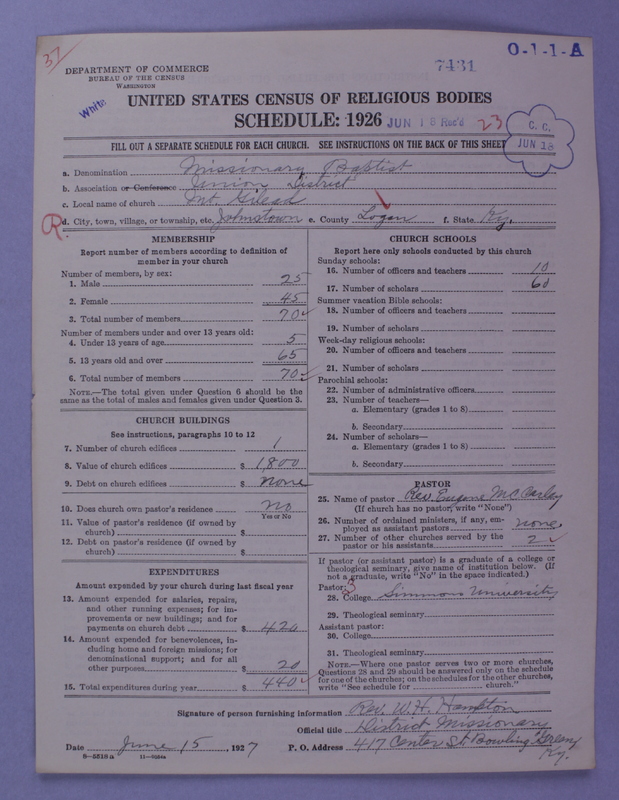 37
O-1-1-A
7431
DEPARTMENT OF COMMERCE
BUREAU OF THE CENSUS
WASHINGTON
White
UNITED STATES CENSUS OF RELIGIOUS BODIES
SCHEDULE: 1926 JUN 18 Rec'd 23
C. C.
JUN 18
FILL OUT A SEPARATE SCHEDULE FOR EACH CHURCH. SEE INSTRUCTIONS ON THE BACK OF THIS SHEET
a. Denomination Missionary Baptist
b. Association or Conference Union District
c. Local name of church Mt. Gilead
R d. City, town, village, or township, etc. Johnstown e. County Logan f. State Ky.
MEMBERSHIP
Report number of members according to definition of
member in your church
Number of members, by sex:
1. Male 25
2. Female 45
3. Total number of members 70
Number of members under and over 13 years old:
4. Under 13 years of age 5
5. 13 years old and over 65
6. Total number of members 70
NOTE.—The total given under Question 6 should be the
same as the total of males and females given under Question 3.
CHURCH BUILDINGS
See instructions, paragraphs 10 to 12
7. Number of church edifices 1
8. Value of church edifices $ 1800
9. Debt on church edifices $ none
10. Does church own pastor's residence? no
Yes or No
11. Value of pastor's residence (if owned by
church) $
12. Debt on pastor's residence (if owned by
church) $
EXPENDITURES
Amount expended by your church during last fiscal year
13. Amount expended for salaries, repairs,
and other running expenses; for im-
provements or new buildings; and for
payments on church debt $ 420
14. Amount expended for benevolences, in-
cluding home and foreign missions; for
denominational support; and for all
other purposes $ 20
15. Total expenditures during year $ 440
CHURCH SCHOOLS
Report here only schools conducted by this church
Sunday schools:
16. Number of officers and teachers 10
17. Number of scholars 60
Summer vacation Bible schools:
18. Number of officers and teachers
19. Number of scholars
Week-day religious schools:
20. Number of officers and teachers
21. Number of scholars
Parochial schools:
22. Number of administrative officers
23. Number of teachers—
a. Elementary (grades 1 to 8)
b. Secondary
24. Number of scholars—
a. Elementary (grades 1 to 8)
b. Secondary
PASTOR
25. Name of pastor Rev. Eugene McCarley
(If church has no pastor, write "None")
26. Number of ordained ministers, if any, em-
ployed as assistant pastors none
27. Number of other churches served by the
pastor or his assistants 2
If pastor (or assistant pastor) is a graduate of a college or
theological seminary, give name of institution below. (If
not a graduate, write "No" in the space indicated.)
Pastor: 3
28. College Simmons University
29. Theological seminary
Assistant pastor:
30. College
31. Theological seminary
NOTE.—Where one pastor serves two or more churches,
Questions 28 and 29 should be answered only on the schedule
for one of the churches; on the schedules for the other churches,
write "See schedule for church."
Signature of person furnishing information Rev. W. H. Hampton
Official title District Missionary
Date June 15, 1927 P. O. Address 417 Center St. Bowling Green,
Ky.